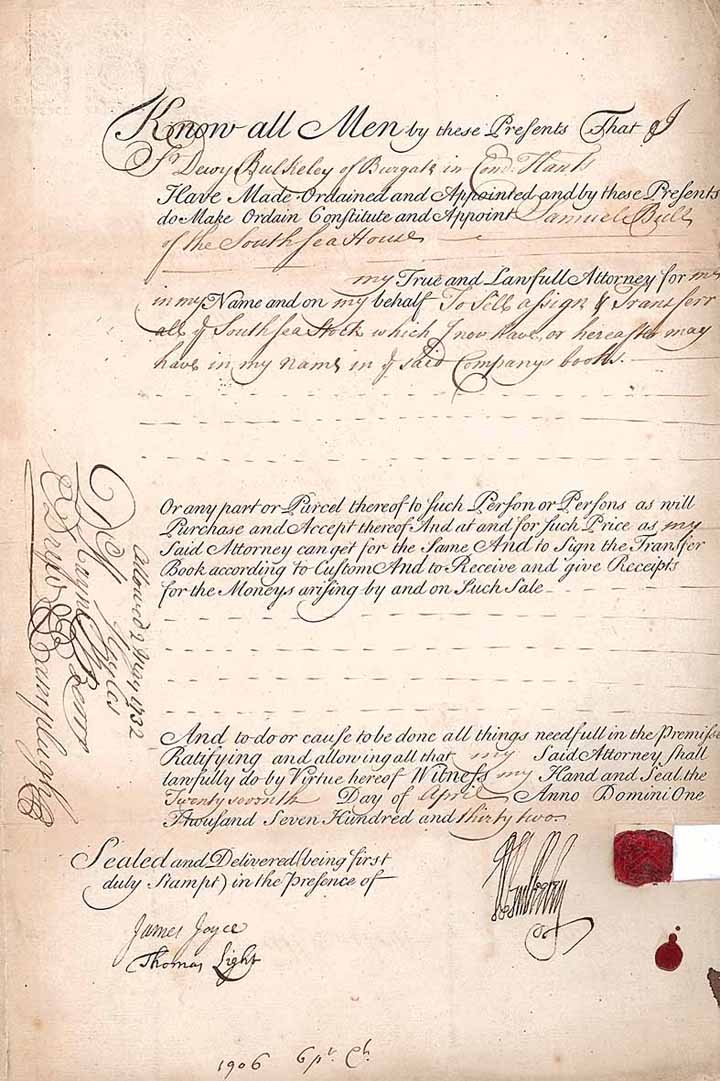 Know all Men by these Presents That I
Sr Dewy Bulkeley of Burgate in Com: Hants
Have Made Ordained and Appointed and by these Presents
do Make Ordain Constitute and Appoint Samuel Bull
of the South Sea House
my True and Lawfull Attorney for me
in my Name and on my behalf To Sell assign & Transferr
all ye South Sea Stock which I now have, or hereafter may
have in my name in ye said Companys books.
Or any part or Parcel thereof to such Person or Persons as will
Purchase and Accept thereof And at and for such Price as my
Said Attorney can get for the Same And to Sign the Transfer
Book according to Custom And to Receive and give Receipts
for the Moneys arising by and on Such Sale
And to do or cause to be done all things needfull in the Premisse
Ratifying and allowing all that my Said Attorney shall
lawfully do by Virtue hereof Witness my Hand and Seal the
Twenty seventh Day of April Anno Domini One
Thousand Seven Hundred and thirty two
Sealed and Delivered (being first
duly Stampt) in the Presence of
James Joyce
Thomas Light
Allowed 2 May 1732
1906 6 pr Ct.